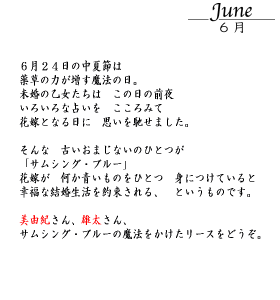 June
６月
６月２４日の中夏節は
薬草の力が増す魔法の日。
未婚の乙女たちは　この日の前夜
いろいろな占いを　こころみて
花嫁となる日に　思いを馳せました。
そんな　古いおまじないのひとつが
「サムシング・ブルー」
花嫁が　何か青いものをひとつ　身につけていると
幸福な結婚生活を約束される、　というものです。
美由紀さん、雄太さん、
サムシング・ブルーの魔法をかけたリースをどうぞ。